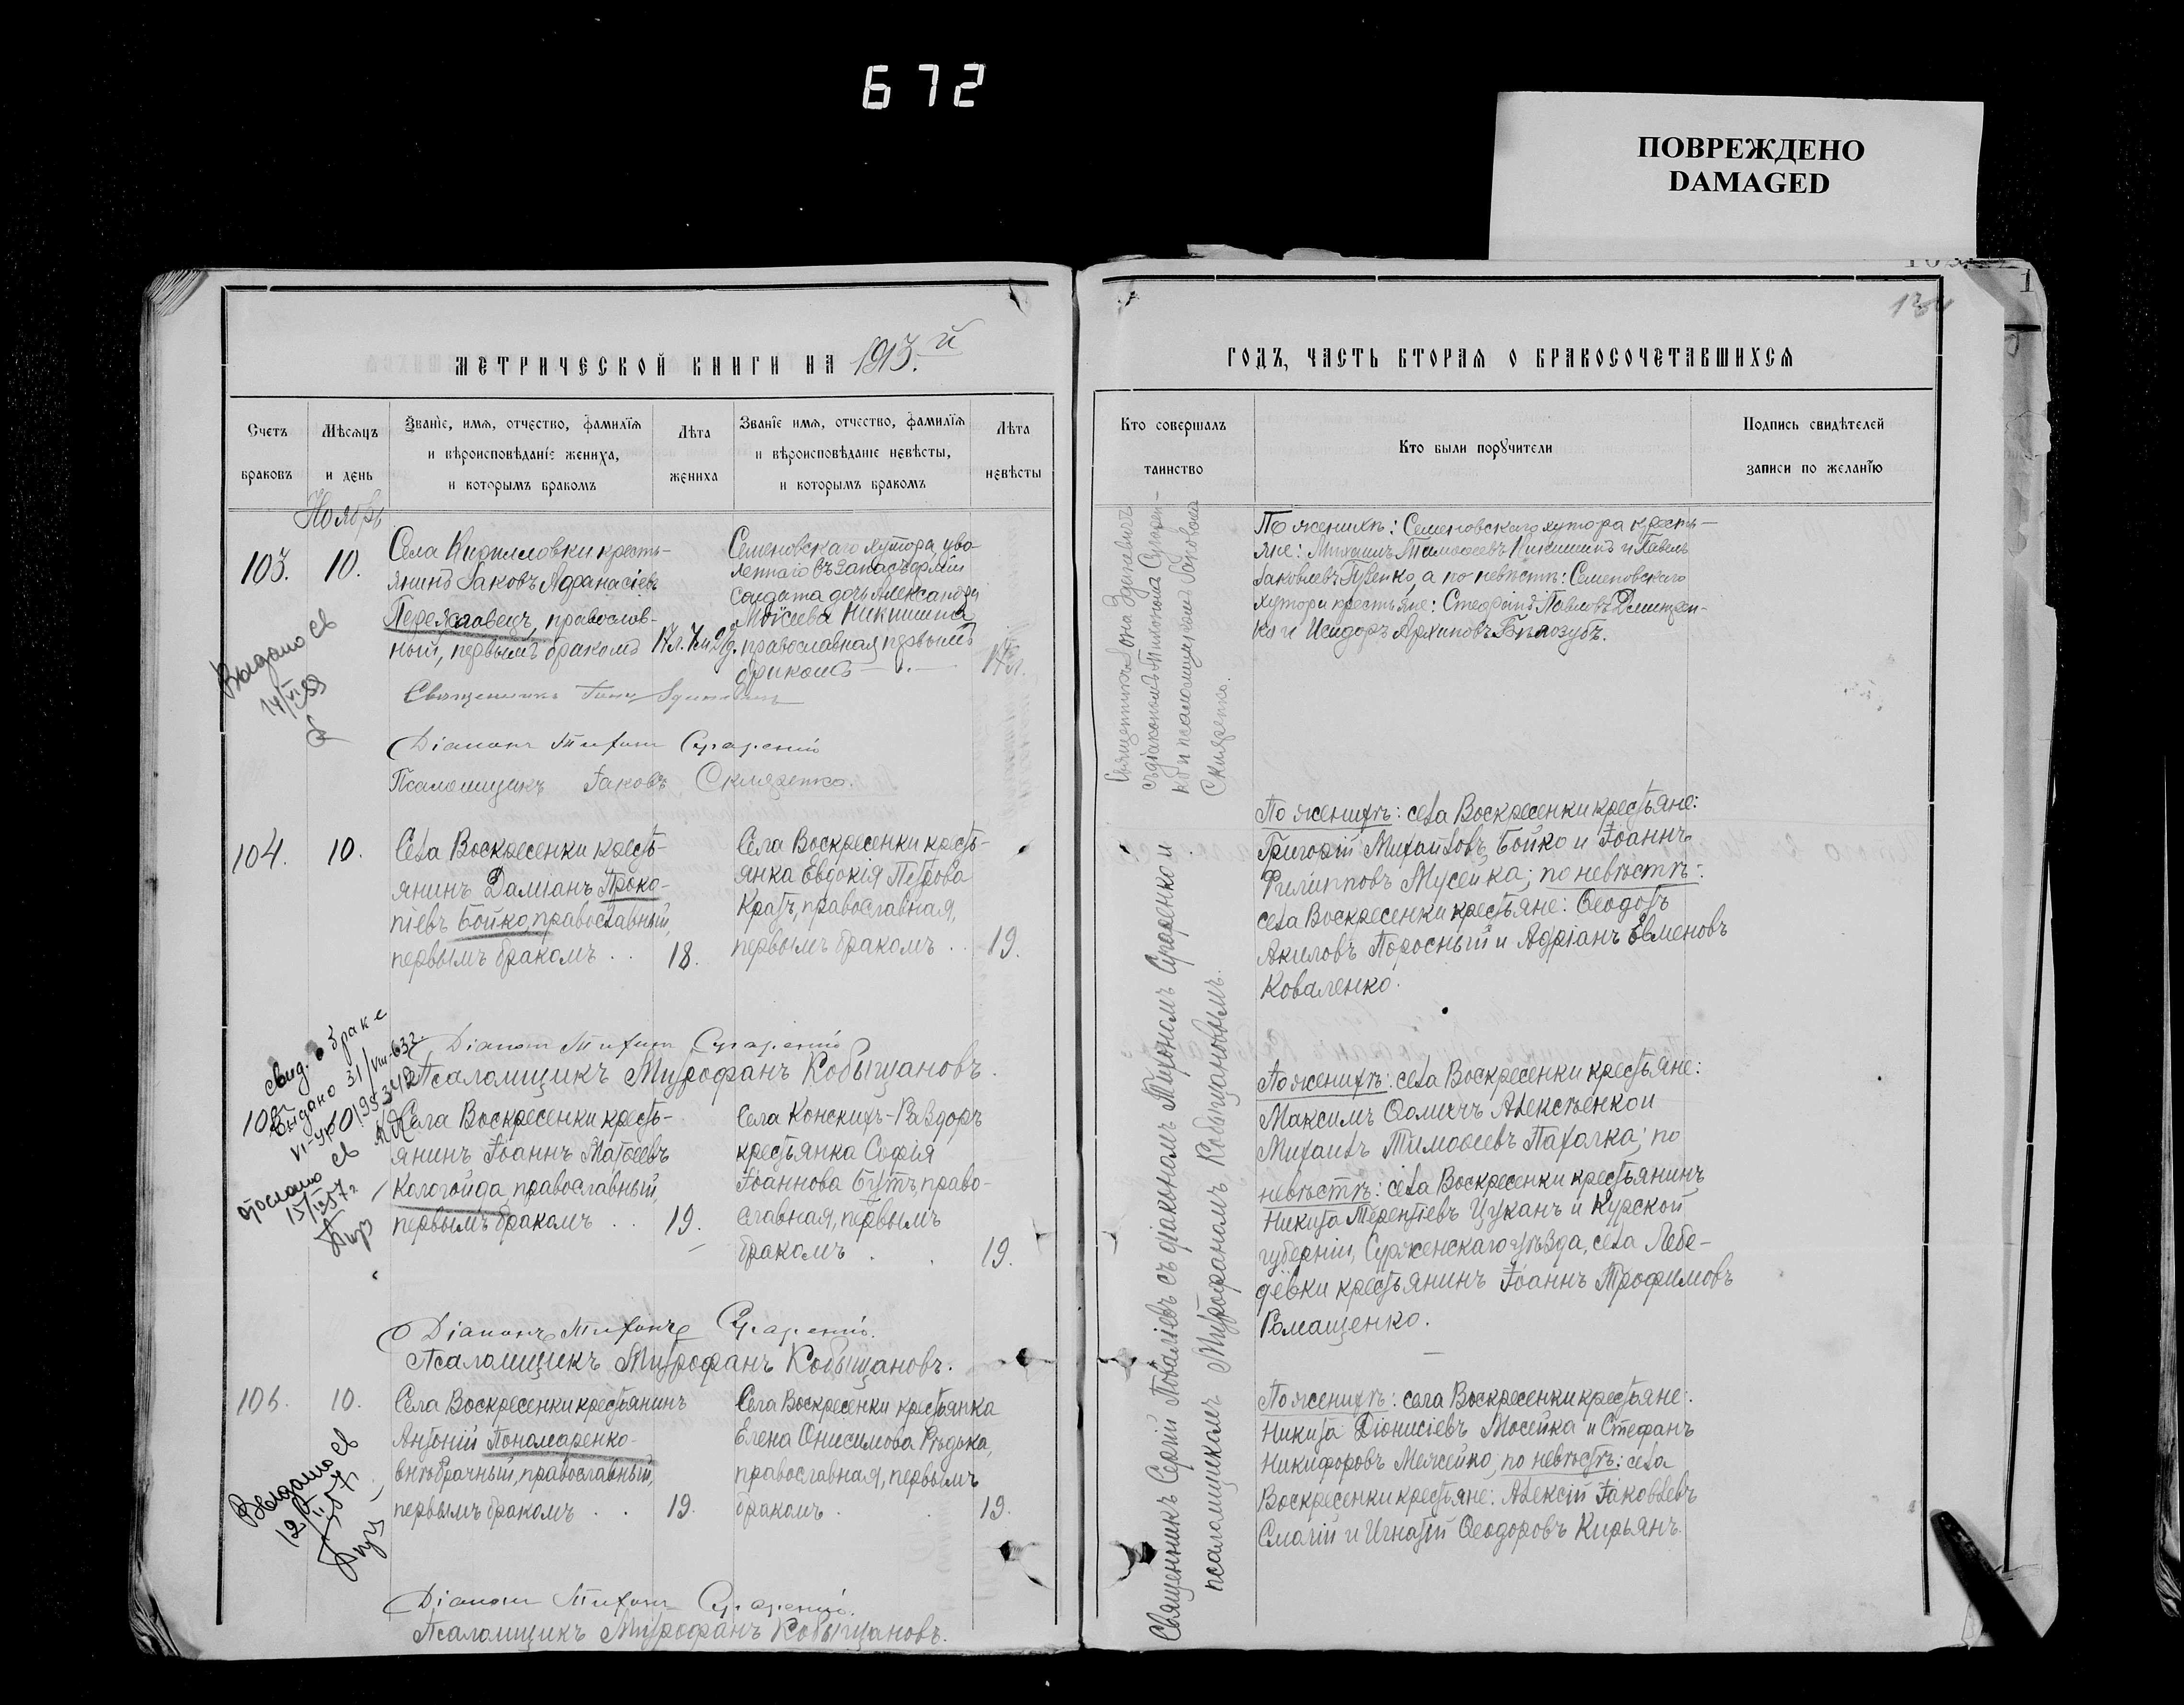 672
ПОВРЕЖДЕНО
DAMAGED
МЕТРИЧЕСКОЙ КНИГИ НА 1913.й
ГОДЪ, ЧАСТЬ ВТОРАЯ О БРАКОСОЧЕТАВШИХСЯ
134
Счетъ браковъ
Мѣсяцъ и день
Званіе, имя, отчество, фамилія
и вѣроисповѣданіе жениха,
и которымъ бракомъ
Лѣта жениха
Званіе имя, отчество, фамилія
и вѣроисповѣданіе невѣсты,
и которымъ бракомъ
Лѣта невѣсты
Кто совершалъ таинство
Кто были поручители
Подпись свидѣтелей
записи по желанію
Ноябрь
103.
10.
Села Кирилловки кресть-
янинъ Іаковъ Аѳанасіевъ
Переяславецъ, православ-
ный, первымъ бракомъ
Семеновскаго хутора, уво-
леннаго въ запасъ арміи
солдата дочь Александра
Моѵсіева Никишина
православная, первымъ
бракомъ
17 л.
Выдано св
14/VI 59
Священникъ Іона
Діаконъ Тихонъ Сугаренко
Псаломщикъ Іаковъ Скляренко.
Священникъ Іона
съ діакономъ Тихономъ Сугарен-
ко и псаломщикомъ Іаковомъ
Скляренко.
По женихѣ: Семеновскаго хутора кресть-
яне: Михаилъ Тимоѳеевъ Никишинъ и Павелъ
Іаковлевъ Пузенко, а по невѣстѣ: Семеновскаго
хутора крестьяне: Стефанъ Павловъ Дмитрен-
ко и Исидоръ Архиповъ Бѣлозубъ.
104.
10.
Села Воскресенки кресть-
янинъ Даміанъ Проко-
піевъ Бойко, православный,
первымъ бракомъ . .
18.
Села Воскресенки кресть-
янка Евдокія Петрова
Кратъ, православная,
первымъ бракомъ . .
19.
Діаконъ Тихонъ Сугаренко
Псаломщикъ Митрофанъ Кобыщановъ.
По женихѣ: села Воскресенки крестьяне:
Григорій Михайловъ Бойко и Іоаннъ
Филипповъ Мусейка; по невѣстѣ:
села Воскресенки крестьяне: Ѳеодотъ
Акиловъ Поросный и Адріанъ Евменовъ
Коваленко.
Свид. о браке
выдано 31/VIII-63г
105.
10.
отослано св
15/ 57г
Села Воскресенки кресть-
янинъ Іоаннъ Матѳеевъ
Кологойда православный,
первымъ бракомъ . .
19.
Села Конскихъ-Раздоръ
крестьянка Софія
Іоаннова Бутъ, право-
славная, первымъ
бракомъ .
19.
Діаконъ Тихонъ Сугаренко.
Псаломщикъ Митрофанъ Кобыщановъ.
По женихѣ: села Воскресенки крестьяне:
Максимъ Ѳомичъ Алексѣенко и
Михаилъ Тимоѳеевъ Пахалка; по
невѣстѣ: села Воскресенки крестьянинъ
Никита Терентіевъ Цуканъ и Курской
губерніи, Сурженскаго уѣзда, села Лебе-
дёвки крестьянинъ Іоаннъ Трофимовъ
Ромащенко.
106.
10.
Выдано св
Села Воскресенки крестьянинъ
Антоній Пономаренко-
внѣбрачный, православный,
первымъ бракомъ . .
19.
Села Воскресенки крестьянка
Елена Онисимова Рѣдька,
православная, первымъ
бракомъ .
19.
Діаконъ Тихонъ Сугаренко.
Псаломщикъ Митрофанъ Кобыщановъ.
Священникъ Сергій Поволгіевъ съ діакономъ Тихономъ Сугаренко и
псаломщикомъ Митрофаномъ Кобыщановымъ.
По женихѣ: села Воскресенки крестьяне:
Никита Діонисіевъ Мосейка и Стефанъ
Никифоровъ Межейко; по невѣстѣ: села
Воскресенки крестьяне: Алексій Іаковлевъ
Смагій и Игнатій Ѳеодоровъ Кирьянъ.